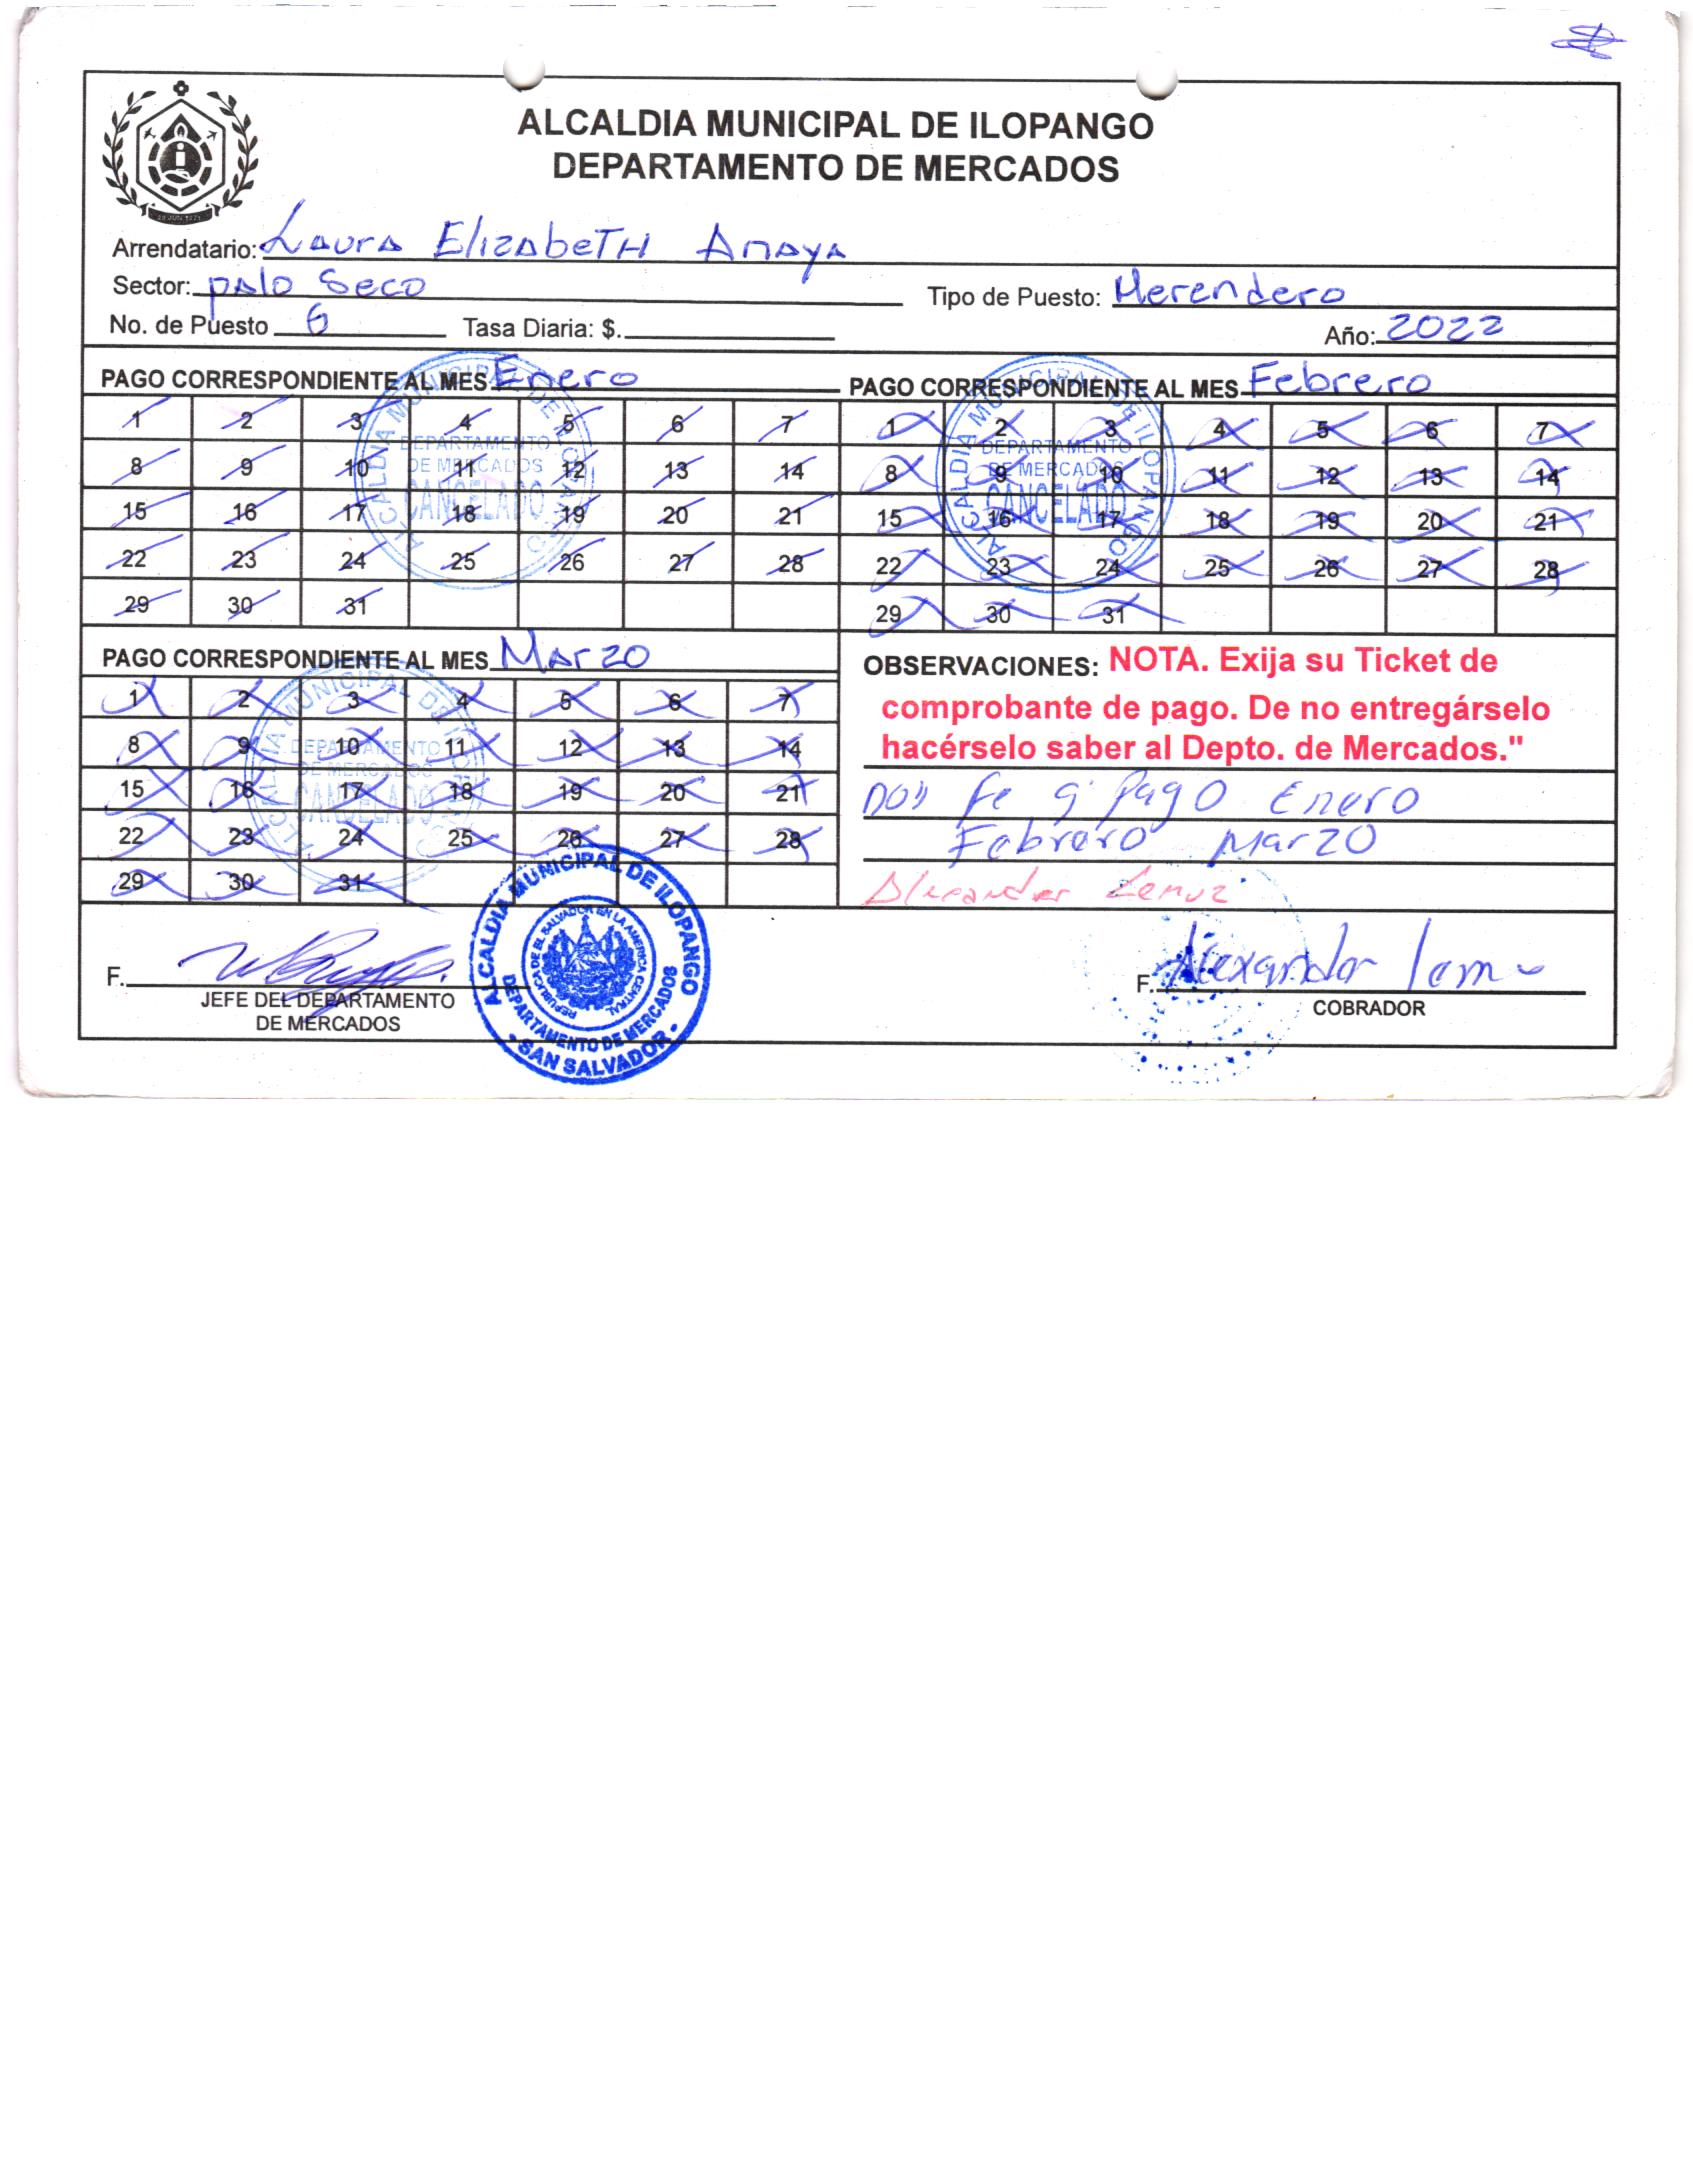 ALCALDIA MUNICIPAL DE ILOPANGO
DEPARTAMENTO DE MERCADOS
28 JUN 1971
Arrendatario: Laura Elizabeth Anaya
Sector: palo Seco Tipo de Puesto: Merendero
No. de Puesto 6 Tasa Diaria: $. Año: 2022
PAGO CORRESPONDIENTE AL MES Enero
1 2 3 4 5 6 7
8 9 10 11 12 13 14
15 16 17 18 19 20 21
22 23 24 25 26 27 28
29 30 31
ALCALDIA MUNICIPAL DE ILOPANGO
DEPARTAMENTO
DE MERCADOS
CANCELADO
PAGO CORRESPONDIENTE AL MES Febrero
1 2 3 4 5 6 7
8 9 10 11 12 13 14
15 16 17 18 19 20 21
22 23 24 25 26 27 28
29 30 31
ALCALDIA MUNICIPAL DE ILOPANGO
DEPARTAMENTO
DE MERCADOS
CANCELADO
PAGO CORRESPONDIENTE AL MES Marzo
1 2 3 4 5 6 7
8 9 10 11 12 13 14
15 16 17 18 19 20 21
22 23 24 25 26 27 28
29 30 31
ALCALDIA MUNICIPAL DE ILOPANGO
DEPARTAMENTO
DE MERCADOS
CANCELADO
OBSERVACIONES: NOTA. Exija su Ticket de
comprobante de pago. De no entregárselo
hacérselo saber al Depto. de Mercados."
Doy fe q' Pago Enero
Febrero Marzo
Alexander Lemuz
F.
JEFE DEL DEPARTAMENTO
DE MERCADOS
ALCALDIA MUNICIPAL DE ILOPANGO
REPUBLICA DE EL SALVADOR EN LA AMERICA CENTRAL
DEPARTAMENTO DE MERCADOS
- SAN SALVADOR -
F. Alexander
COBRADOR